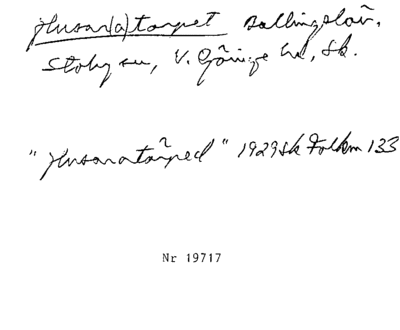 Husar(a)torpet Ballingslöv,
Stoby sn, V. Göinge hd, Sk.
"Husaratorped" 1929 Sk Folkm 133
Nr 19717